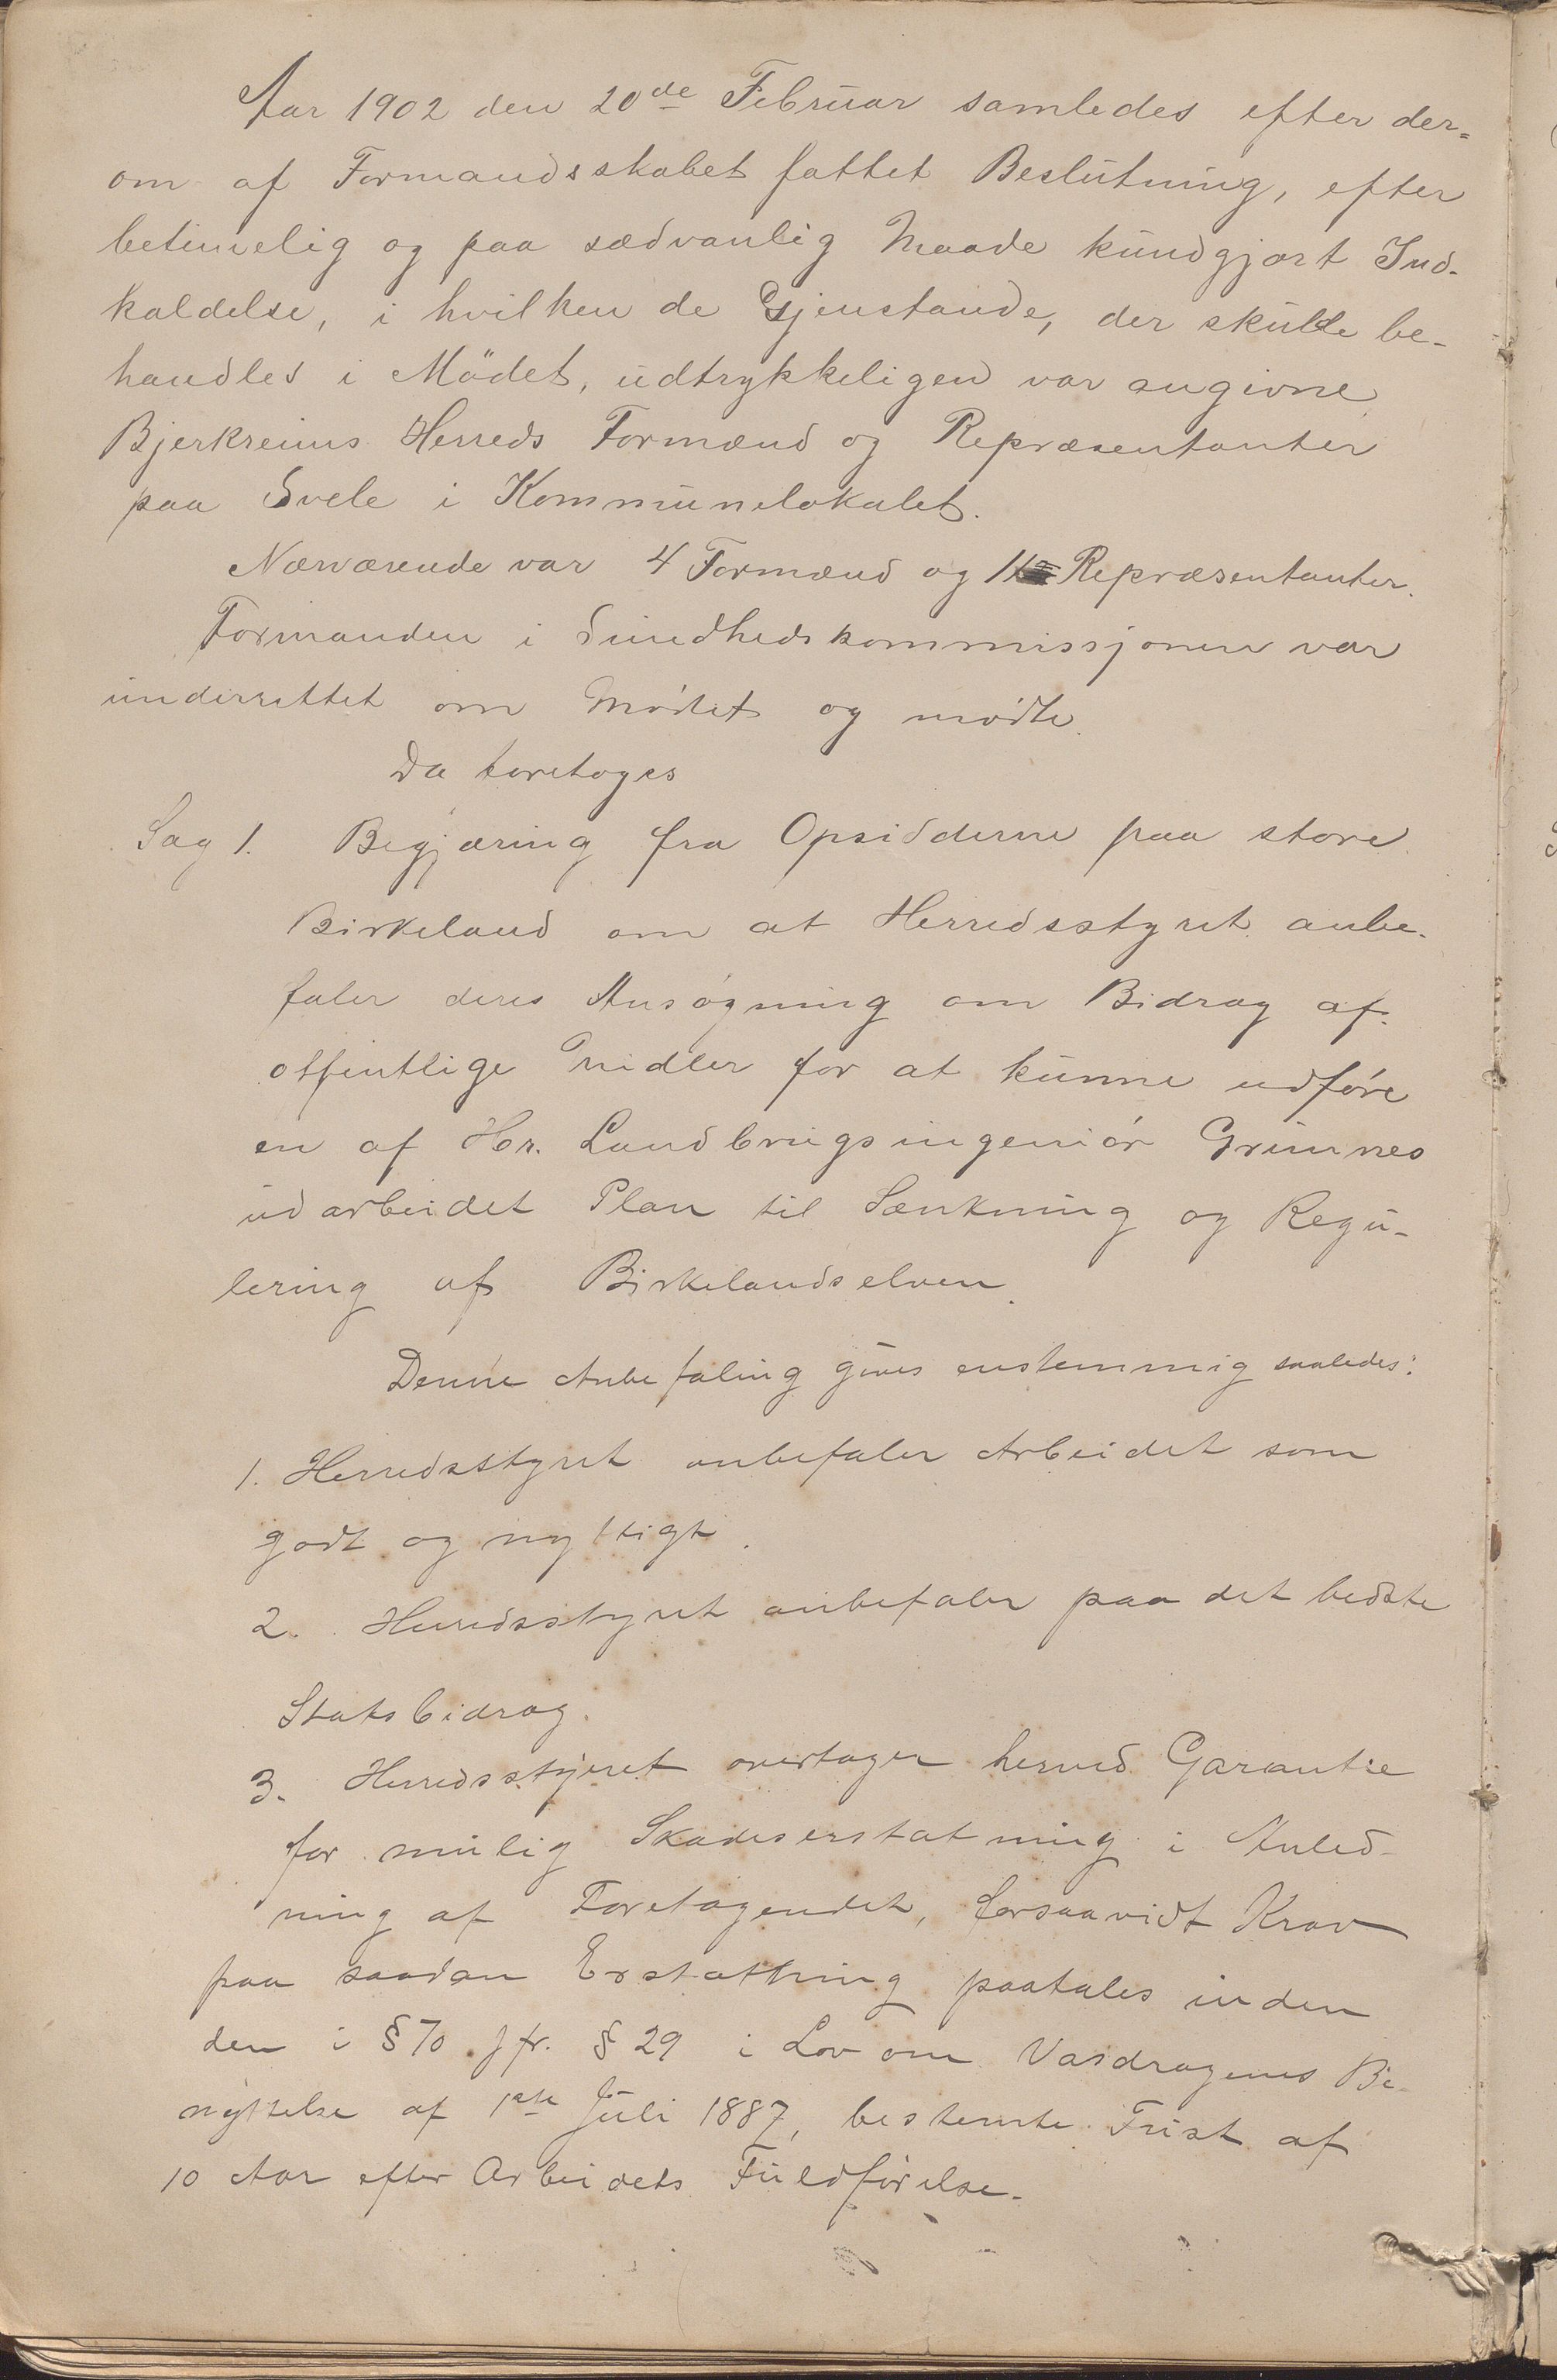 Aar 1902 den 20de Februar samledes efter der=
om af Formandsskabet fattet Beslutning, efter
betimelig og paa sædvanlig Maade kundgjort Ind-
kaldelse, i hvilken de Gjenstande, der skulde be-
handles i Mödet, udtrykkeligen var angivne
Bjerkreims Herreds Formænd og Repræsentanter
paa Svele i Kommunelokalet.
Nærværende var 4 Formænd og 11 Repræsentanter.
Formanden i Sundhedskommissjonen var
underrettet om Mødet og mødte.
Da foretoges
Sag 1. Begjæring fra Opsidderne paa store
Birkeland om at Herredsstyret anbe-
faler deres Ansøgning om Bidrag af
offentlige Midler for at kunne udføre
en af Hr. Landbrugsingeniør Grimnes
udarbeidet Plan til Sænkning og Regu-
lering af Birkelandselven.
Denne Anbefaling gives enstemmig saaledes:
1. Herredsstyret anbefaler Arbeidet som
godt og nyttigt.
2. Herredsstyret anbefaler paa det bedste
Statsbidrag.
3. Herredsstyret overtager herved Garantie
for mulig Skadeserstatning i Anled-
ning af Foretagendet, forsaavidt Krav
paa saadan Erstattning paatales inden
den i § 70 jfr. § 29 i Lov om Vasdragenes Be-
nyttelse af 1ste Juli 1887, bestemte Frist af
10 Aar efter Arbeidets Fuldførelse.